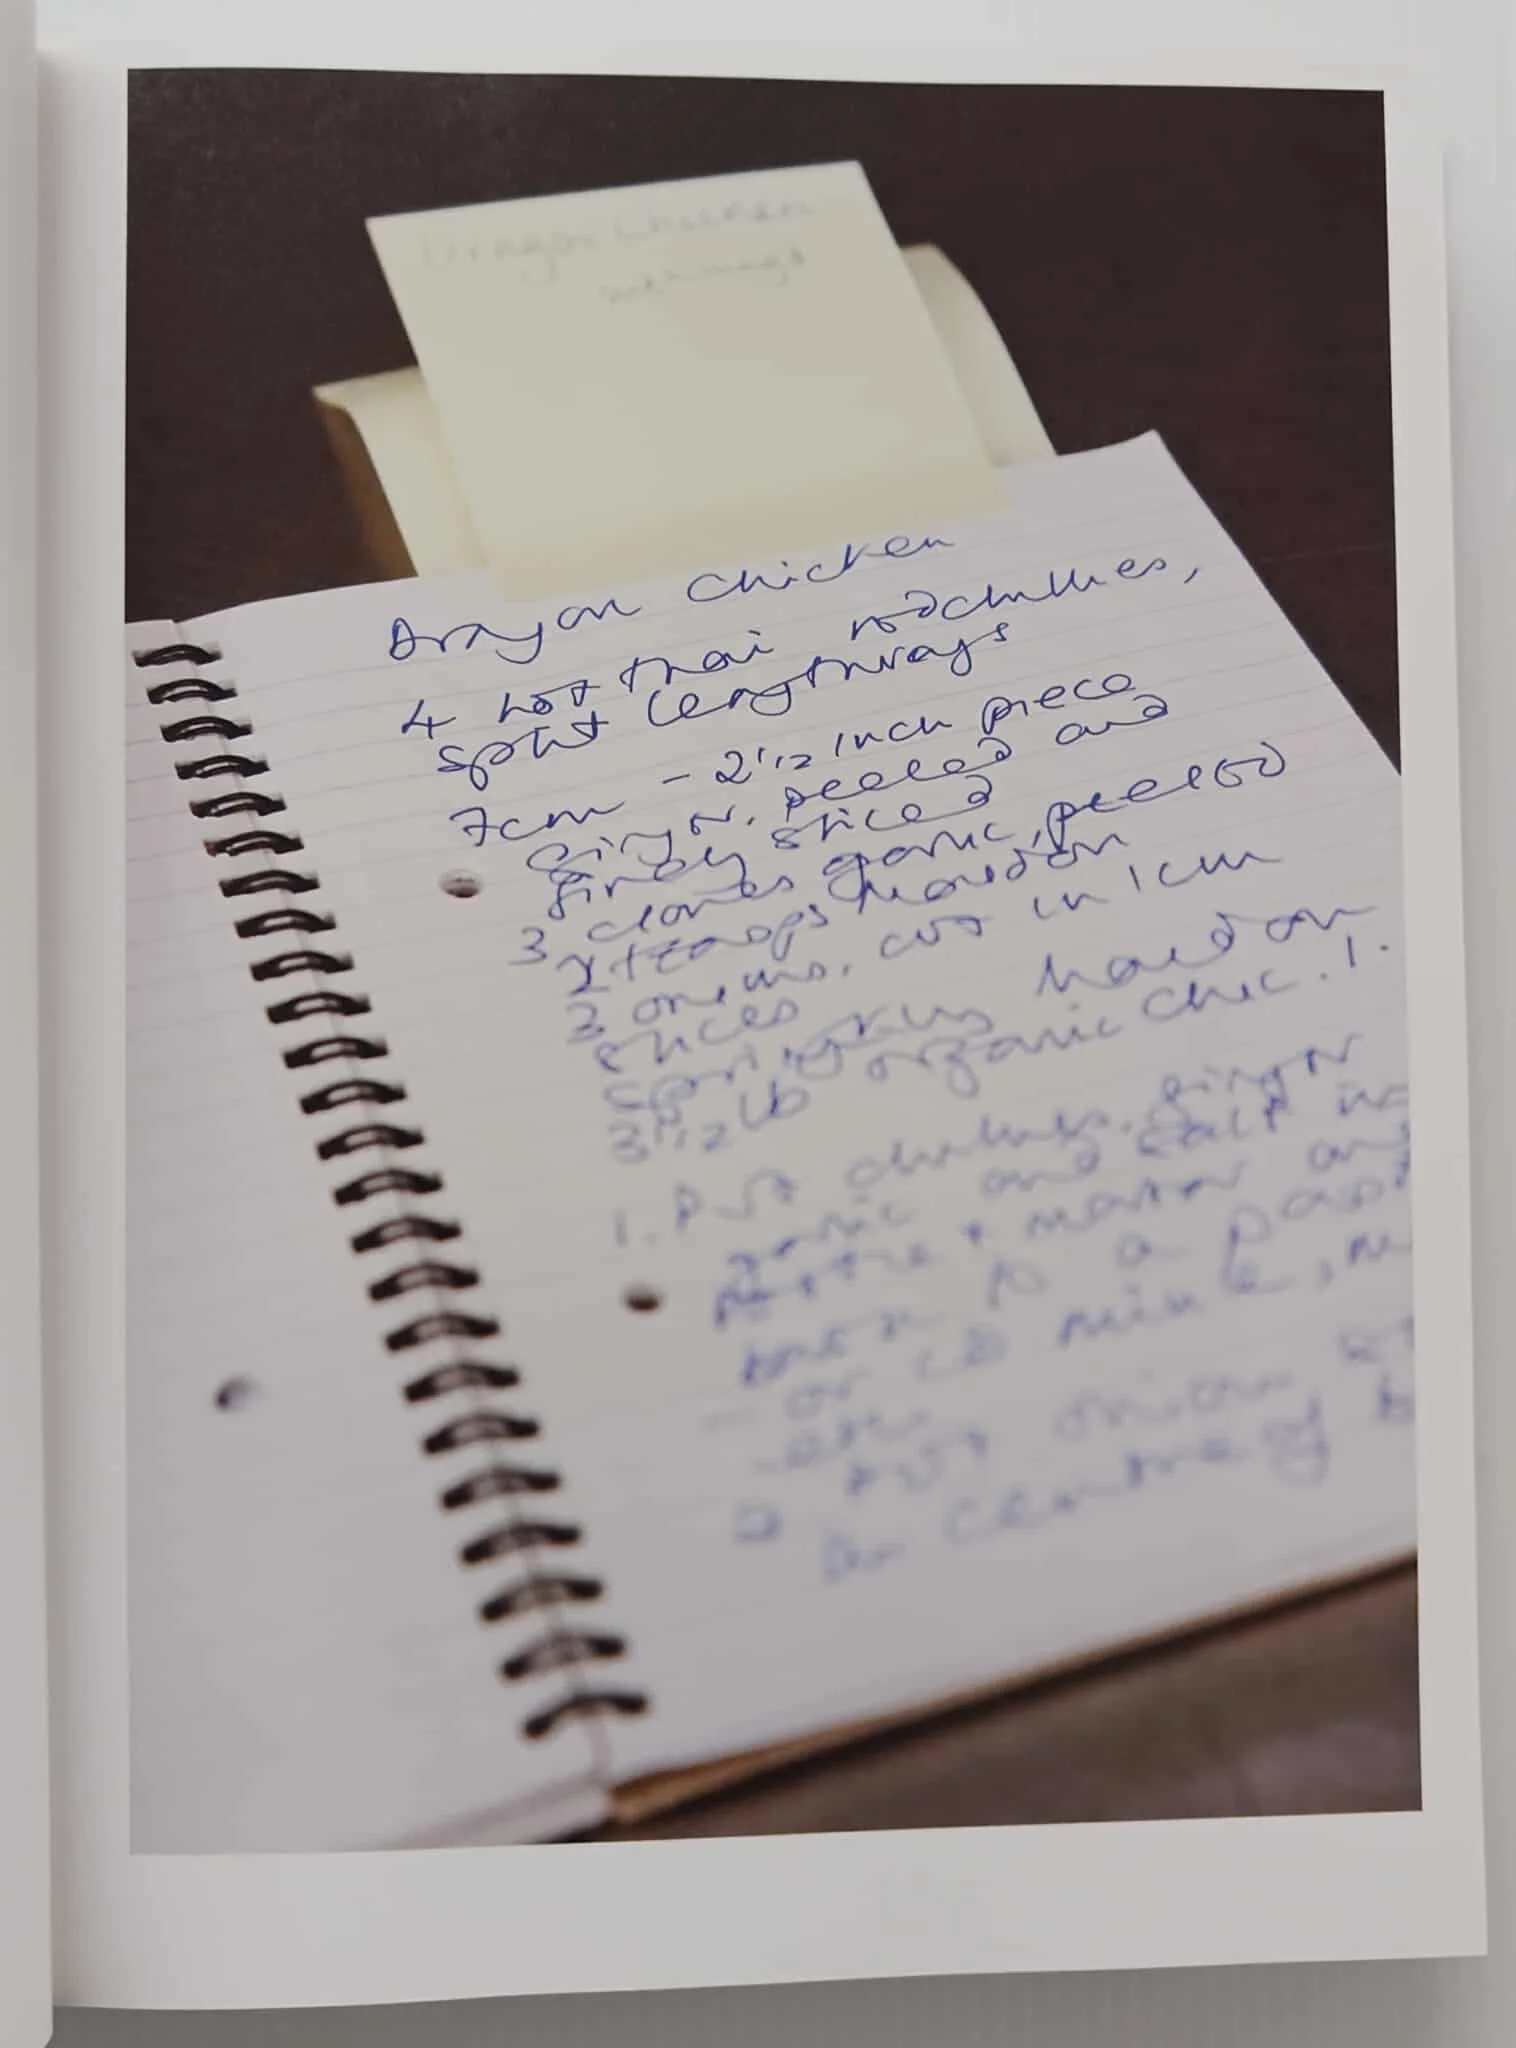 Dragon Chicken
Dragon Chicken
4 hot thai red chillies,
split lengthways
7cm - 2 1/2 inch piece
ginger, peeled and
finely sliced
3 cloves garlic, peeled
2 teasps maldon
3 onions, cut in 1cm
slices
maldon
3 1/2 lb organic chic. 1.
1. Put chillies, ginger
garlic and salt in
pestle + mortar and
to a
or
2 onion
centre of